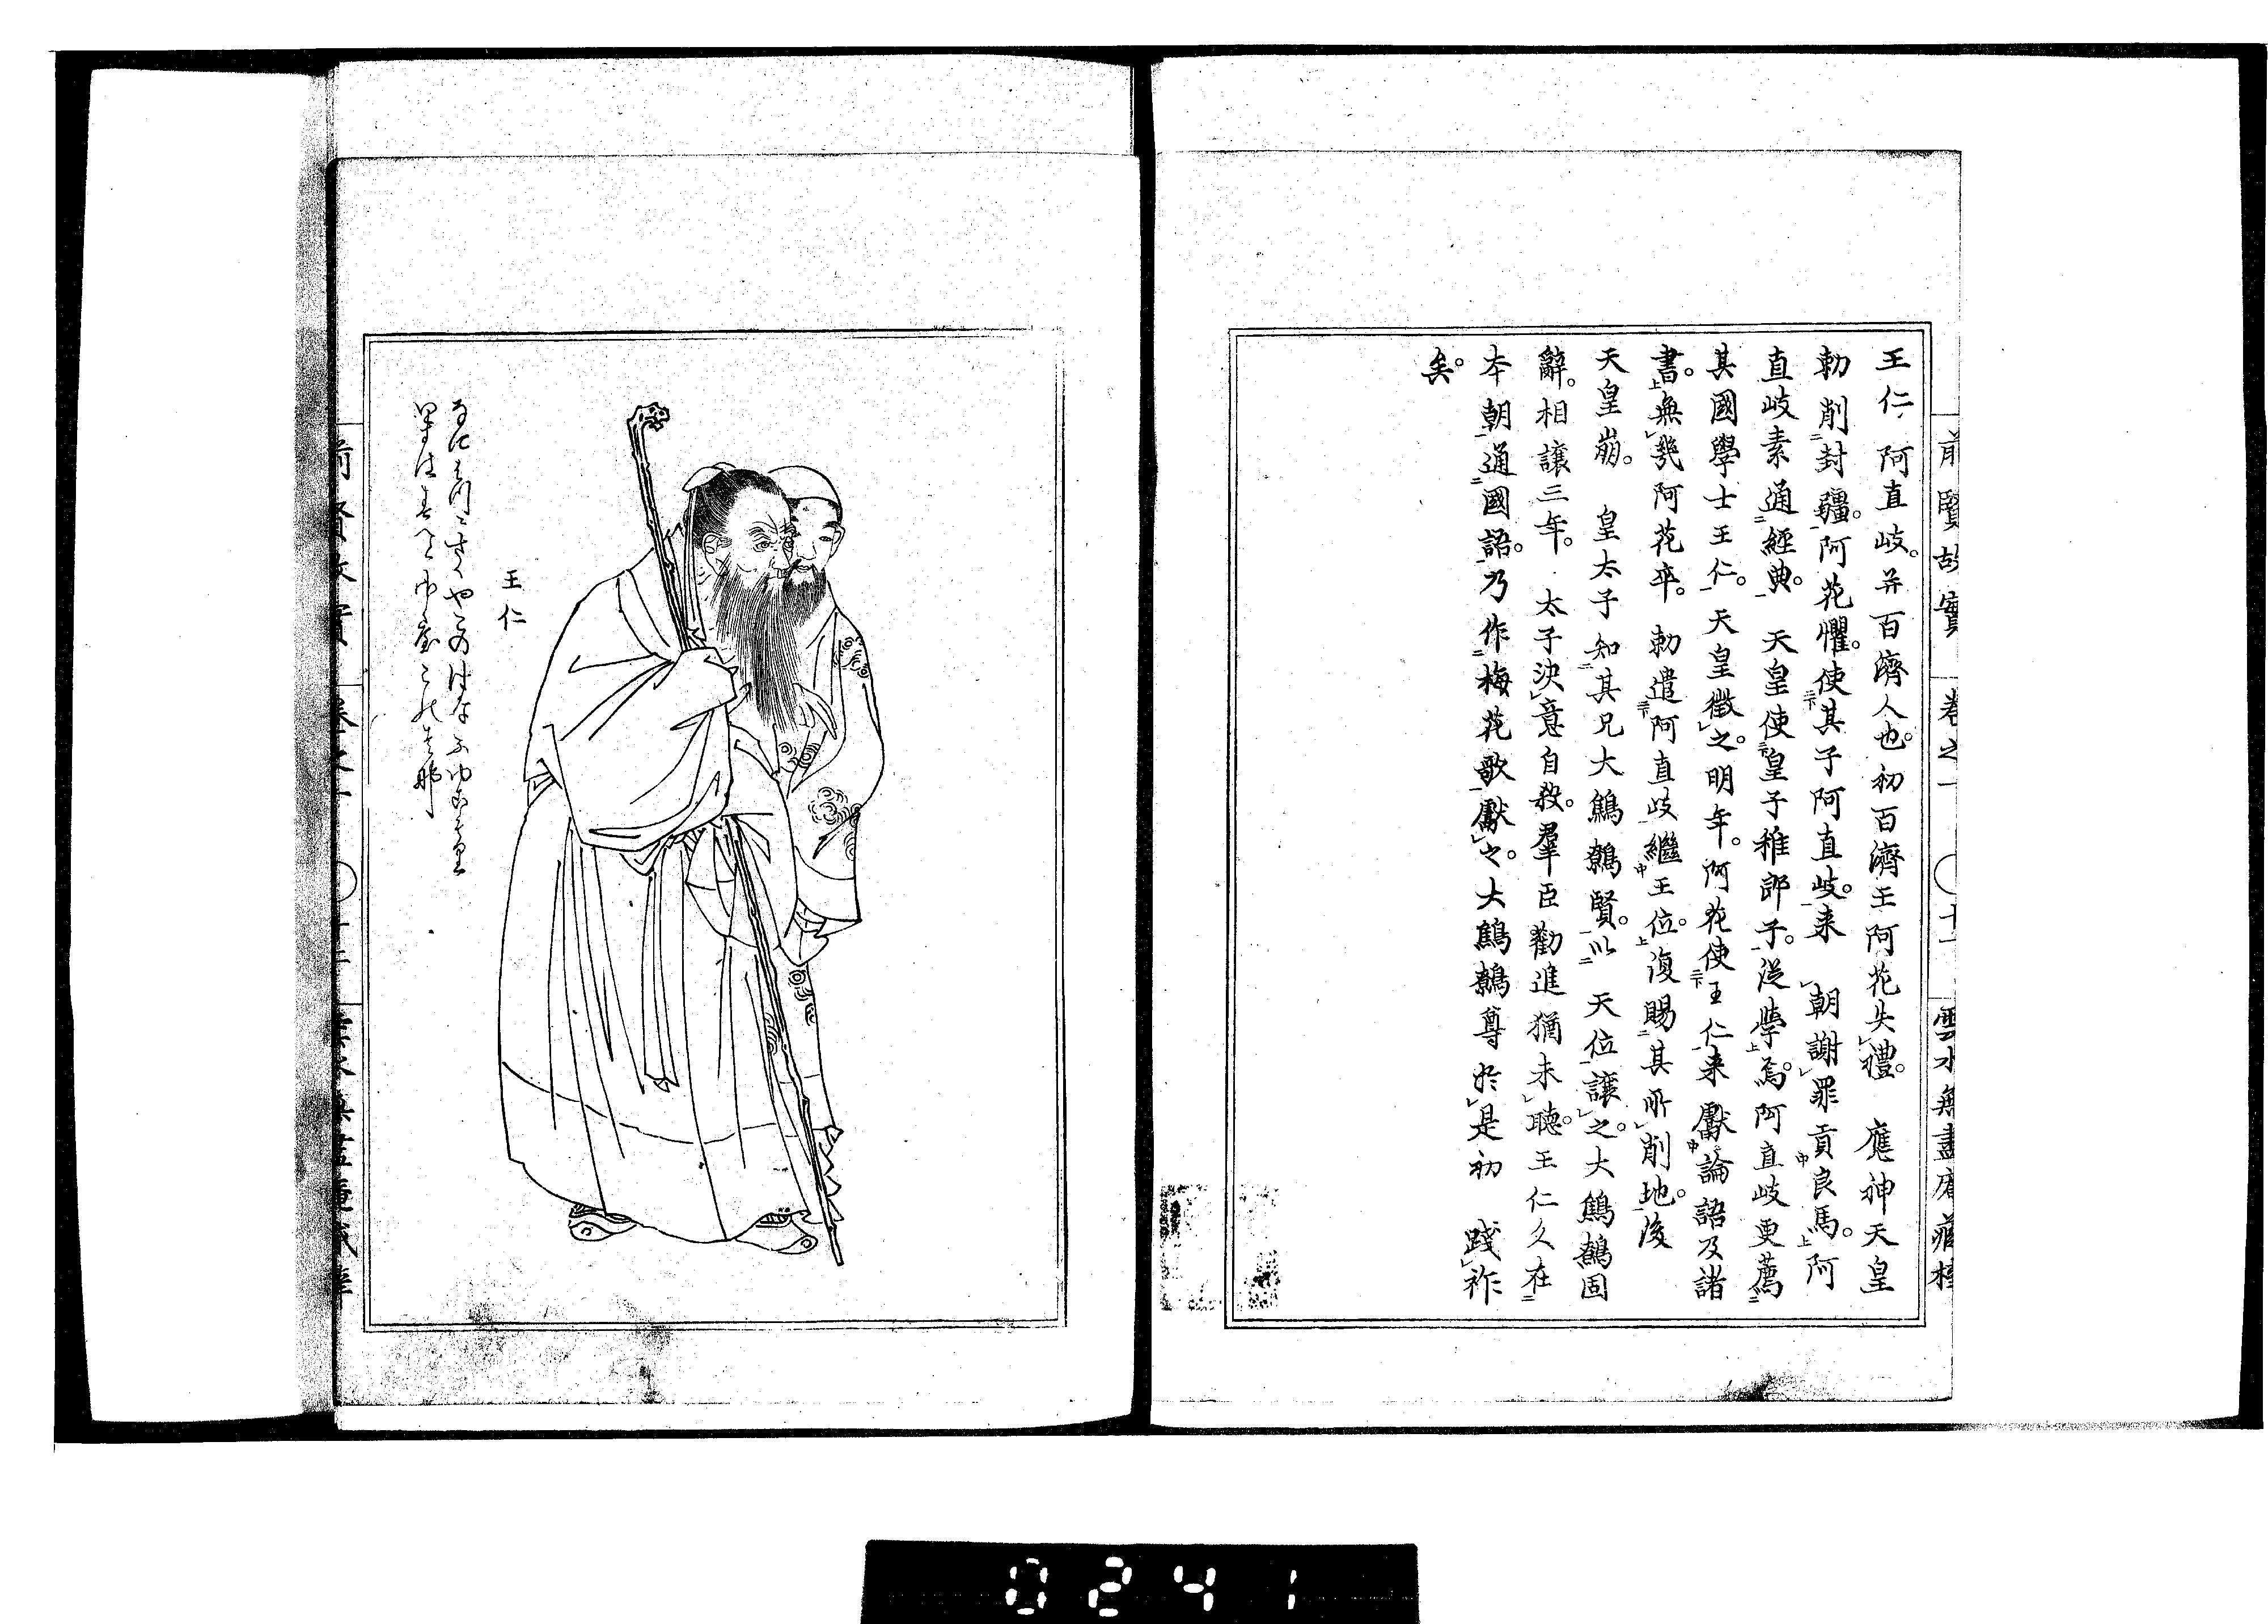 前賢故實 卷之一 〇十一 雲水無盡庵藏
王仁 阿直岐。并百濟人也。初百濟王阿花失禮。 應神天皇
勅削封疆。阿花懼。使其子阿直岐。来 朝謝罪貢良馬。阿
直岐素通經典。 天皇使皇子稚郎子。從學焉。阿直岐更薦
其國學士王仁。 天皇徵之。明年。阿花使王仁来獻論語及諸
書。無幾阿花卒。 勅遣阿直岐繼王位。復賜其所削地。後
天皇崩。 皇太子知其兄大鷦鷯賢。以 天位讓之。大鷦鷯固
辭。相讓三年。 太子決意自殺。羣臣勸進猶未聽。王仁久在
本朝通國語。乃作梅花歌獻之。大鷦鷯尊於是初 踐祚
矣。
王仁
0241